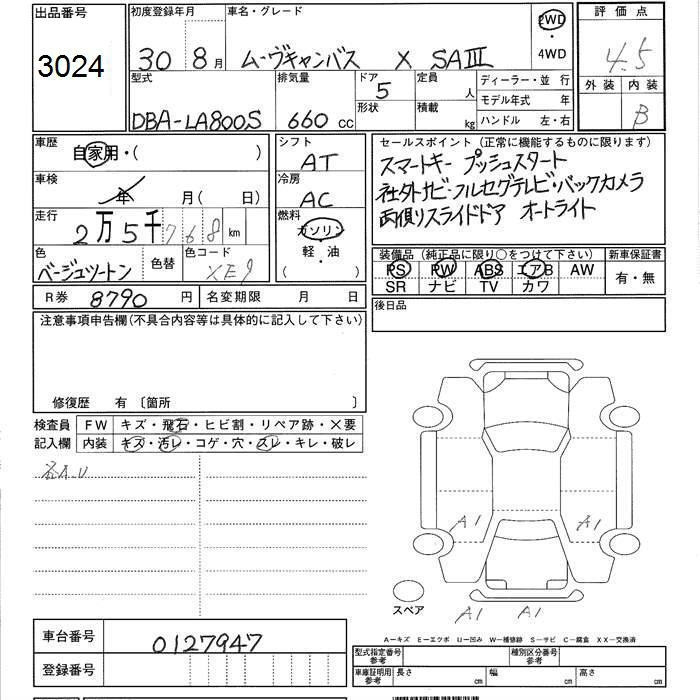 出品番号 初度登録年月 車名・グレード 2WD 評価点
3024 30 8月 ムーヴキャンバス X SAⅢ ・ 4WD 4.5
型式 排気量 ドア 定員 ディーラー・並 行 外装 内装
DBA-LA800S 660 CC 5 形状 人 積載 kg モデル年式 年 B
ハンドル 左・右
車歴 自家用・( ) シフト AT セールスポイント (正常に機能するものに限ります)
車検 年 月( 日) 冷房 AC スマートキー プッシュスタート
社外ナビ・フルセグテレビ・バックカメラ
走行 2万5千768km 燃料 ガソリン 両側スライドドア オートライト
軽・油
( )
色 ベージュツートン 色替 色コード XE9 装備品 (純正品に限り○をつけて下さい) 新車保証書
PS PW ABS エアB AW 有・無
SR ナビ TV カワ
R券 8790 円 名変期限 月 日 後日品
注意事項申告欄(不具合内容等は具体的に記入して下さい)
修復歴 有 〔箇所 〕
検査員 FW キズ・飛石・ヒビ割・リペア跡・×要
記入欄 内装 キズ・汚レ・コゲ・穴・スレ・キレ・破レ
A1 A1
スペア A1 A1
A-キズ E-エクボ U-凹み W-補修跡 S-サビ C-腐食 XX-交換済
車台番号 0127947
登録番号
型式指定番号 参考 種別区分番号 参考
車庫証明用 参考 長さ cm 幅 cm 高さ cm